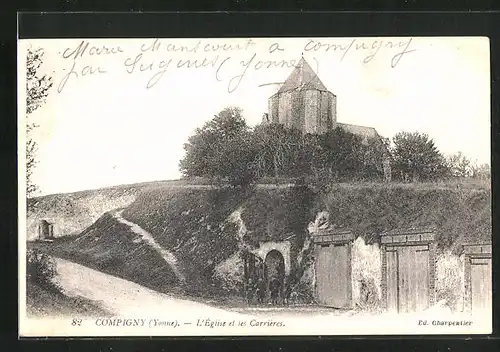 Marie Manscourt à Compigny
par Sergines (Yonne)
82 COMPIGNY (Yonne). - L'Église et ses Carrières.
Ed. Charpentier